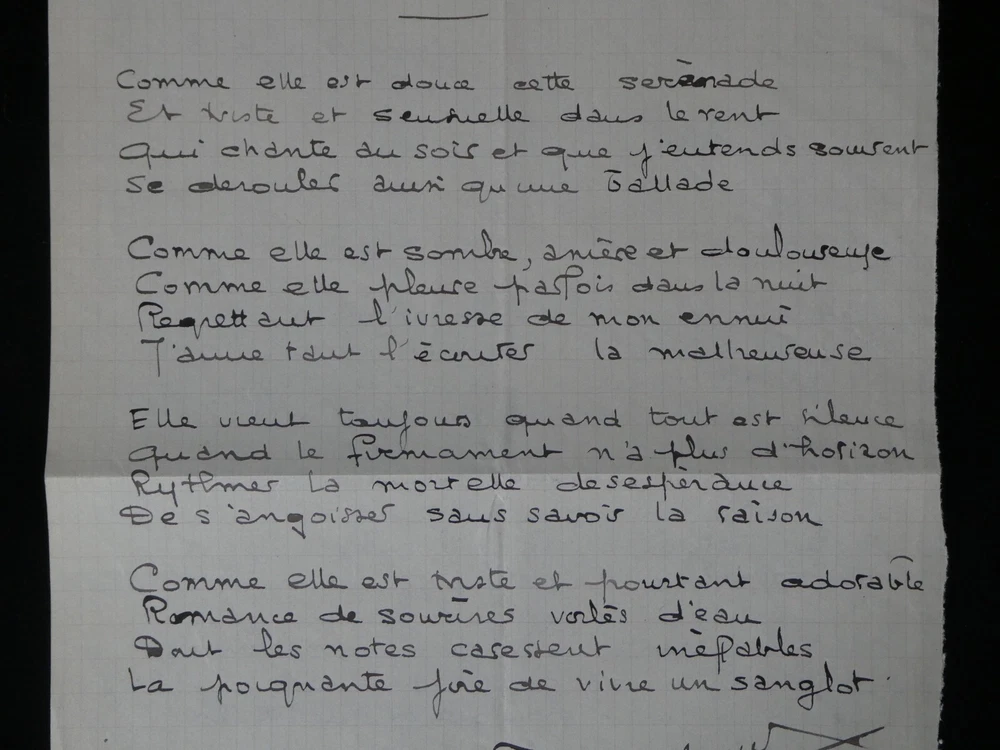 Comme elle est douce cette serènade
Et triste et sensuelle dans le vent
Qui chante au soir et que j'entends souvent
Se derouler ainsi qu'une ballade
Comme elle est sombre, amère et douloureuse
Comme elle pleure parfois dans la nuit
Regrettant l'ivresse de mon ennui
J'aime tant l'écouter la malheureuse
Elle vient toujours quand tout est silence
Quand le firmament n'a plus d'horizon
Rythmer la mortelle desespèrance
De s'angoisser sans savoir la raison
Comme elle est triste et pourtant adorable
Romance de sourires voilès d'eau
Dont les notes caressent
La poignante joie de vivre un sanglot.